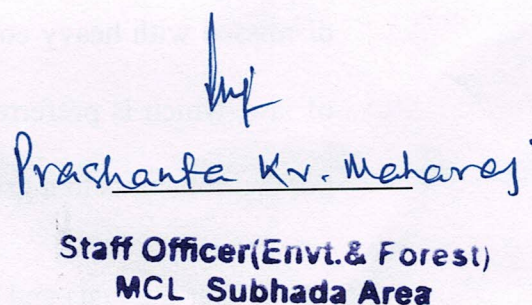 Prashanta Kr. Maharaj
Staff Officer(Envt.& Forest)
MCL Subhada Area